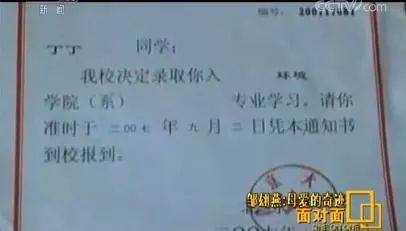 新闻
CCTV.com
编号:
丁丁 同学:
我校决定录取你入 环境
学院(系) 专业学习。请你
准时于 二00七 年 九 月 二 日凭本通知书
到校报到。
邹翃燕:母爱的奇迹
面对面
ONE ON ONE